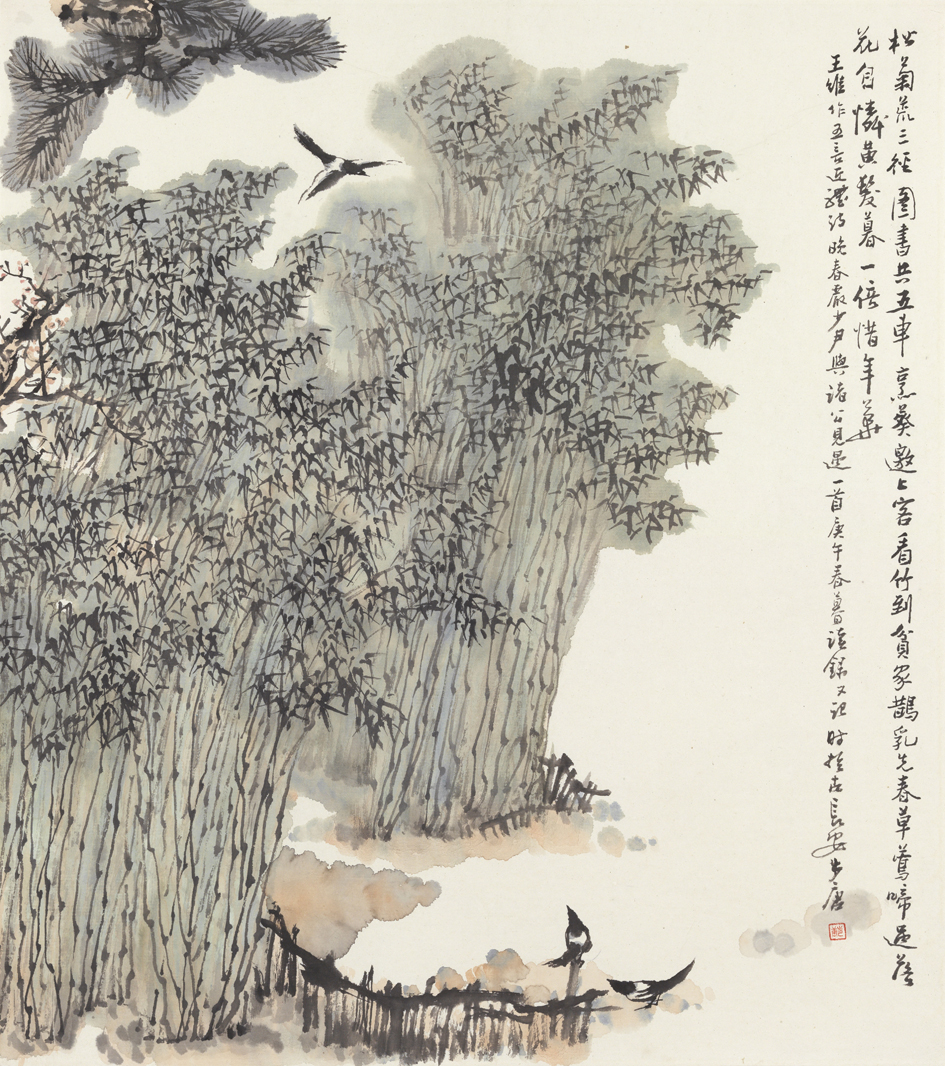 松菊荒三徑圖書共五車烹葵邀上客看竹到貧家鵲乳先春草鶯啼過落
花自憐黃髮暮一倍惜年華
王維作五言近體詩晚春嚴少尹與諸公見過一首庚午春暮讀錄又記時於古長安步唐